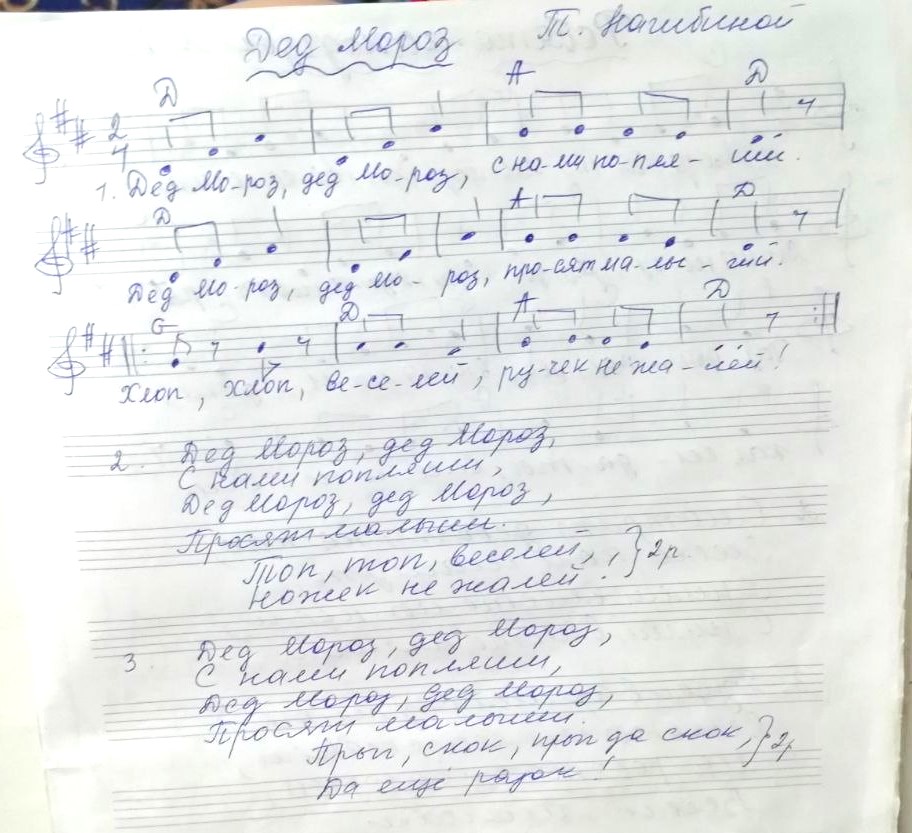 Дед Мороз Т. Нагибиной
D A D
2
4
1. Дед Мо-роз, дед Мо-роз, с на-ми по-пля-ши.
D A D
Дед Мо-роз, дед Мо-роз, про-сят ма-лы-ши.
G D A D
Хлоп, хлоп, ве-се-лей, ру-чек не жа-лей!
2. Дед Мороз, дед Мороз,
С нами попляши,
Дед Мороз, дед Мороз,
Просят малыши.
Топ, топ, веселей, } 2р
Ножек не жалей!
3 Дед Мороз, дед Мороз,
С нами попляши,
Дед Мороз, дед Мороз,
Просят малыши.
Прып, скок, прып да скок, } 2р
Да ещё разок!